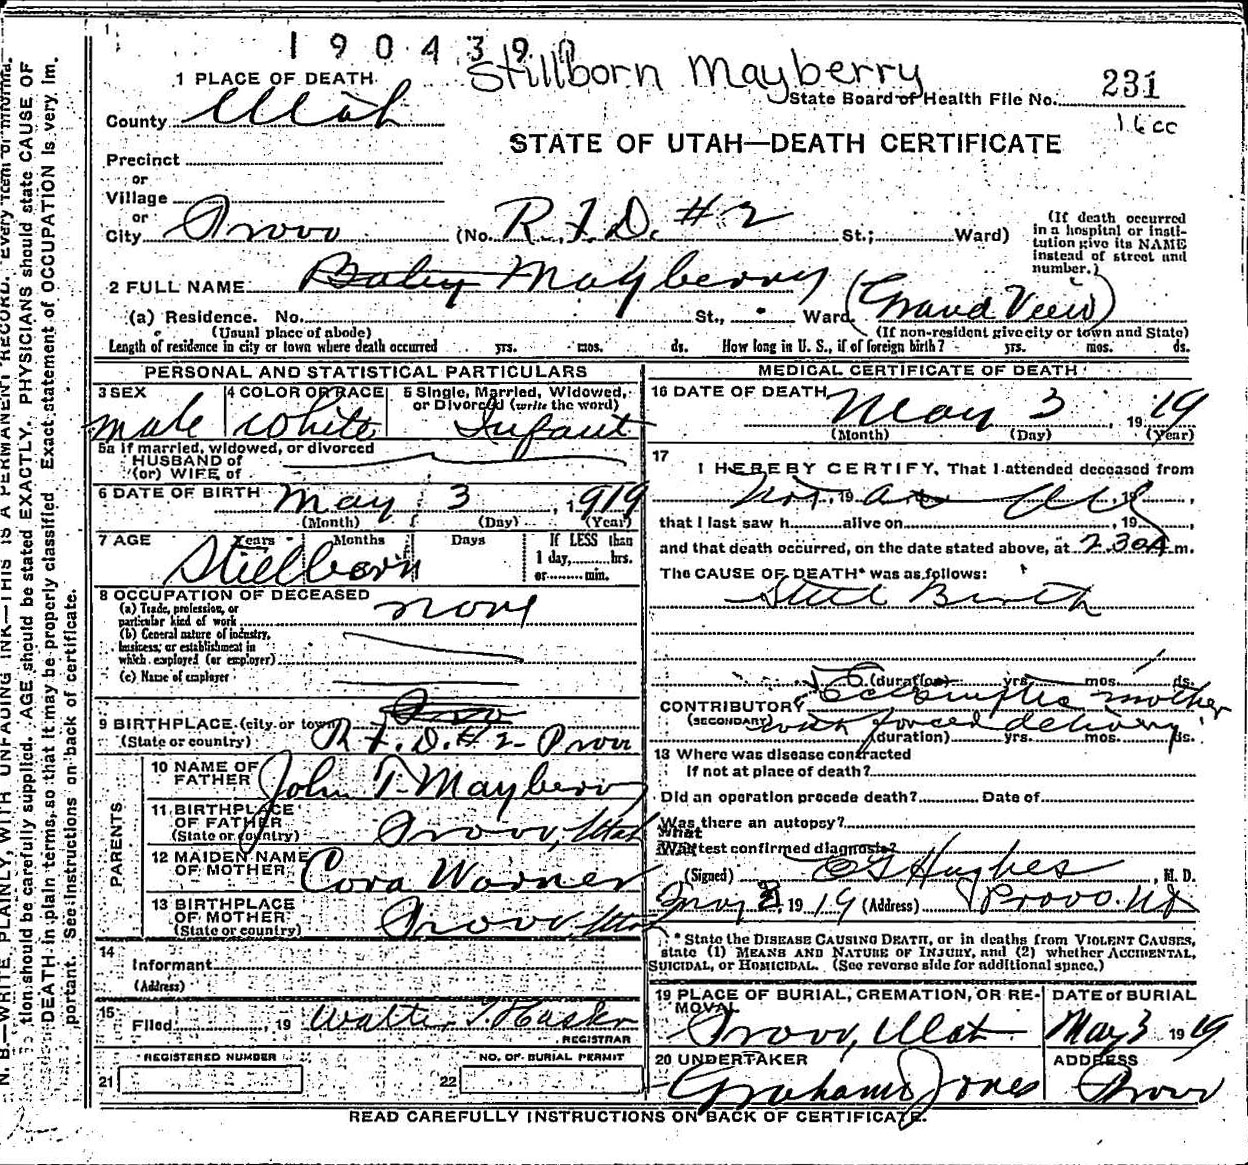 1904390
Stillborn Mayberry
1 PLACE OF DEATH
State Board of Health File No. 231
County Utah
16 cc
STATE OF UTAH—DEATH CERTIFICATE
Precinct
or
Village
or
City Provo (No. R.F.D. #2 St.; Ward)
(If death occurred in a hospital or institution give its NAME instead of street and number.)
2 FULL NAME Baby Mayberry
(a) Residence. No. St., Ward. (Grand View)
(Usual place of abode) (If non-resident give city or town and State)
Length of residence in city or town where death occurred yrs. mos. ds. How long in U. S., if of foreign birth? yrs. mos. ds.
PERSONAL AND STATISTICAL PARTICULARS
3 SEX male
4 COLOR OR RACE white
5 Single, Married, Widowed, or Divorced (write the word) Infant
5a If married, widowed, or divorced
HUSBAND of
(or) WIFE of
6 DATE OF BIRTH May 3, 1919
(Month) (Day) (Year)
7 AGE Years Months Days If LESS than
1 day, hrs.
or min.
Stillborn
8 OCCUPATION OF DECEASED
(a) Trade, profession, or
particular kind of work none
(b) General nature of industry,
business, or establishment in
which employed (or employer)
(c) Name of employer
Provo
9 BIRTHPLACE (city or town)
(State or country) R.F.D. #2 - Provo
PARENTS
10 NAME OF FATHER John T. Mayberry
11 BIRTHPLACE OF FATHER Provo, Utah
(State or country)
12 MAIDEN NAME OF MOTHER Cora Warner
13 BIRTHPLACE OF MOTHER Provo, Utah
(State or country)
14
Informant
(Address)
15
Filed , 19 Walter T. Hasler
REGISTRAR
REGISTERED NUMBER NO. OF BURIAL PERMIT
21 22
MEDICAL CERTIFICATE OF DEATH
16 DATE OF DEATH May 3, 1919
(Month) (Day) (Year)
17
I HEREBY CERTIFY, That I attended deceased from
Not , 19 at all , 19 ,
that I last saw h alive on , 19 ,
and that death occurred, on the date stated above, at 2 30 A m.
The CAUSE OF DEATH* was as follows:
Still Birth
(duration) yrs. mos. ds.
CONTRIBUTORY Eclamptic mother
(SECONDARY) with forced delivery
(duration) yrs. mos. ds.
18 Where was disease contracted
If not at place of death?
Did an operation precede death? Date of
Was there an autopsy?
What test confirmed diagnosis?
(Signed) E G Hughes, M. D.
May , 1919 (Address) Provo. Ut
* State the DISEASE CAUSING DEATH, or in deaths from VIOLENT CAUSES,
state (1) MEANS AND NATURE OF INJURY, and (2) whether ACCIDENTAL,
SUICIDAL, or HOMICIDAL. (See reverse side for additional space.)
19 PLACE OF BURIAL, CREMATION, OR REMOVAL Provo, Utah
DATE of BURIAL May 3 1919
20 UNDERTAKER Graham Jones
ADDRESS Provo
READ CAREFULLY INSTRUCTIONS ON BACK OF CERTIFICATE.
N. B.—WRITE PLAINLY, WITH UNFADING INK—THIS IS A PERMANENT RECORD. Every item of informa-
tion should be carefully supplied. AGE should be stated EXACTLY. PHYSICIANS should state CAUSE OF
DEATH in plain terms, so that it may be properly classified. Exact statement of OCCUPATION is very im-
portant. See instructions on back of certificate.